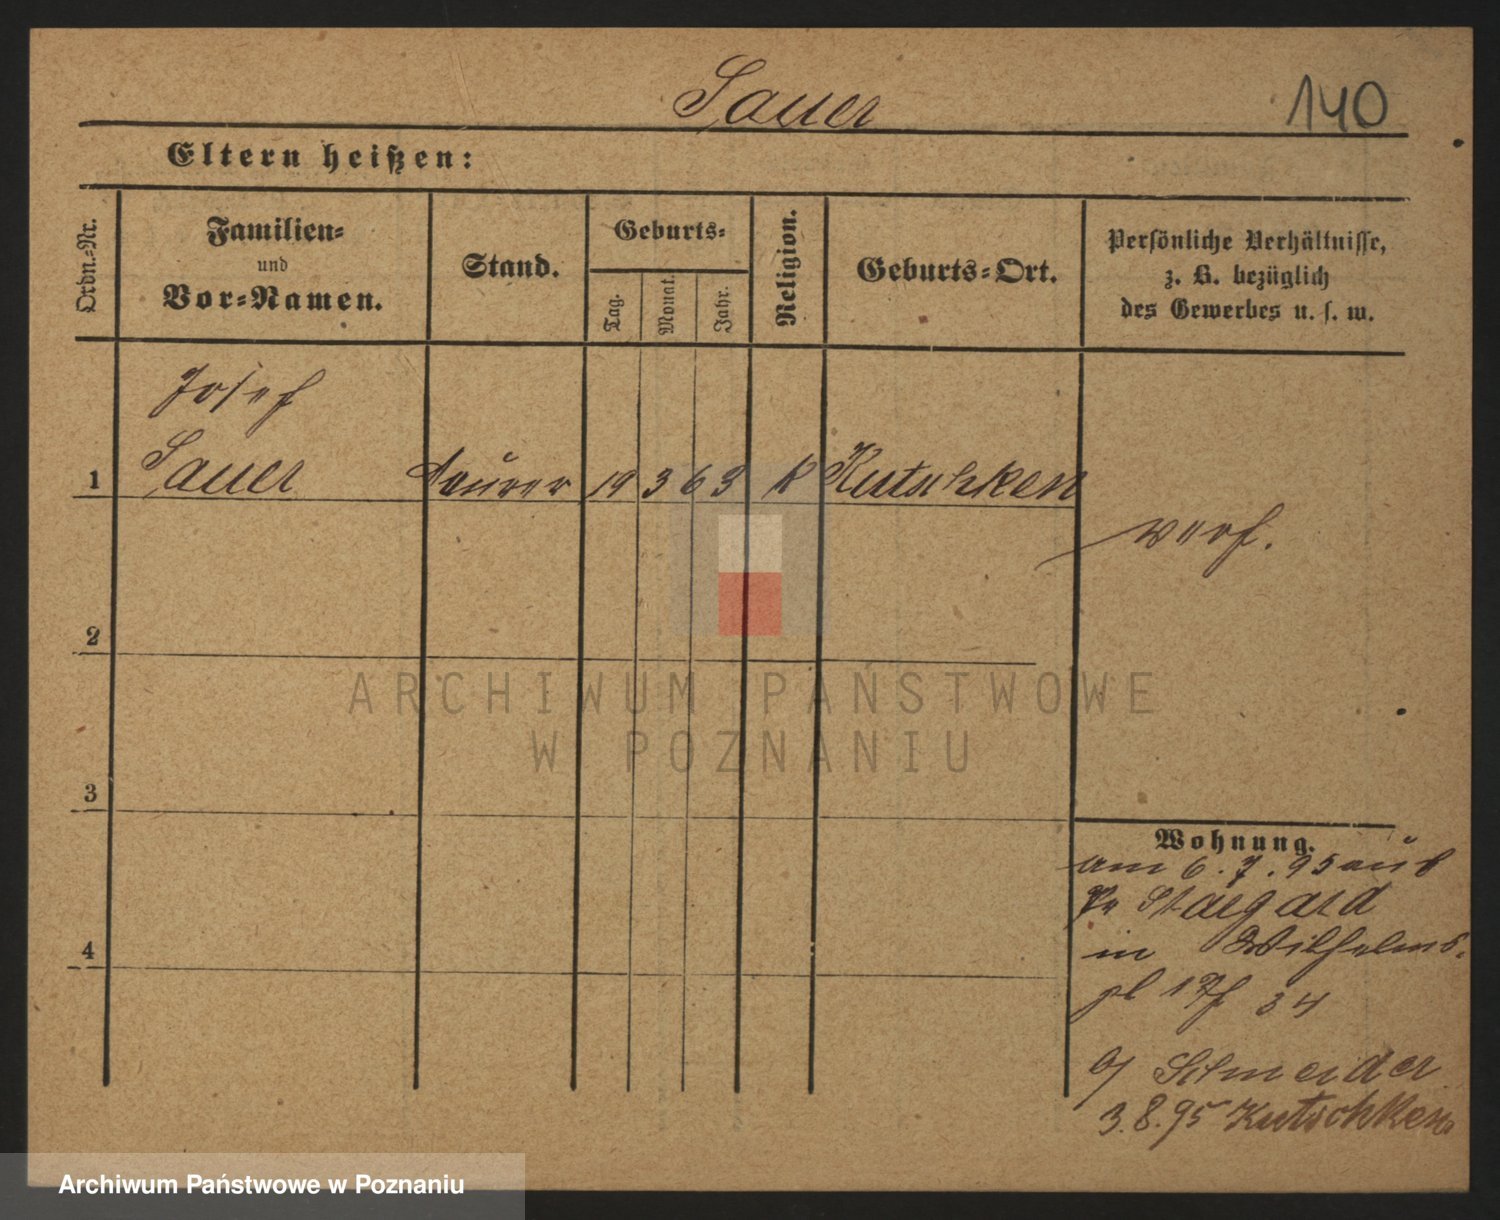 Sauer
140
Eltern heißen:
Ordn.-Nr.
Familien-
und
Vor-Namen.
Stand.
Geburts-
Tag.
Monat.
Jahr.
Religion.
Geburts-Ort.
Persönliche Verhältnisse,
z. B. bezüglich
des Gewerbes u. s. w.
Josef
1 Sauer 19 3 63 k Kutschken
verh.
2
3
4
ARCHIWUM PAŃSTWOWE
W POZNANIU
Wohnung.
am 6. 7. 95 aus
in Wilhelms-
pl 17 34
3.8.95 Kutschken
Archiwum Państwowe w Poznaniu